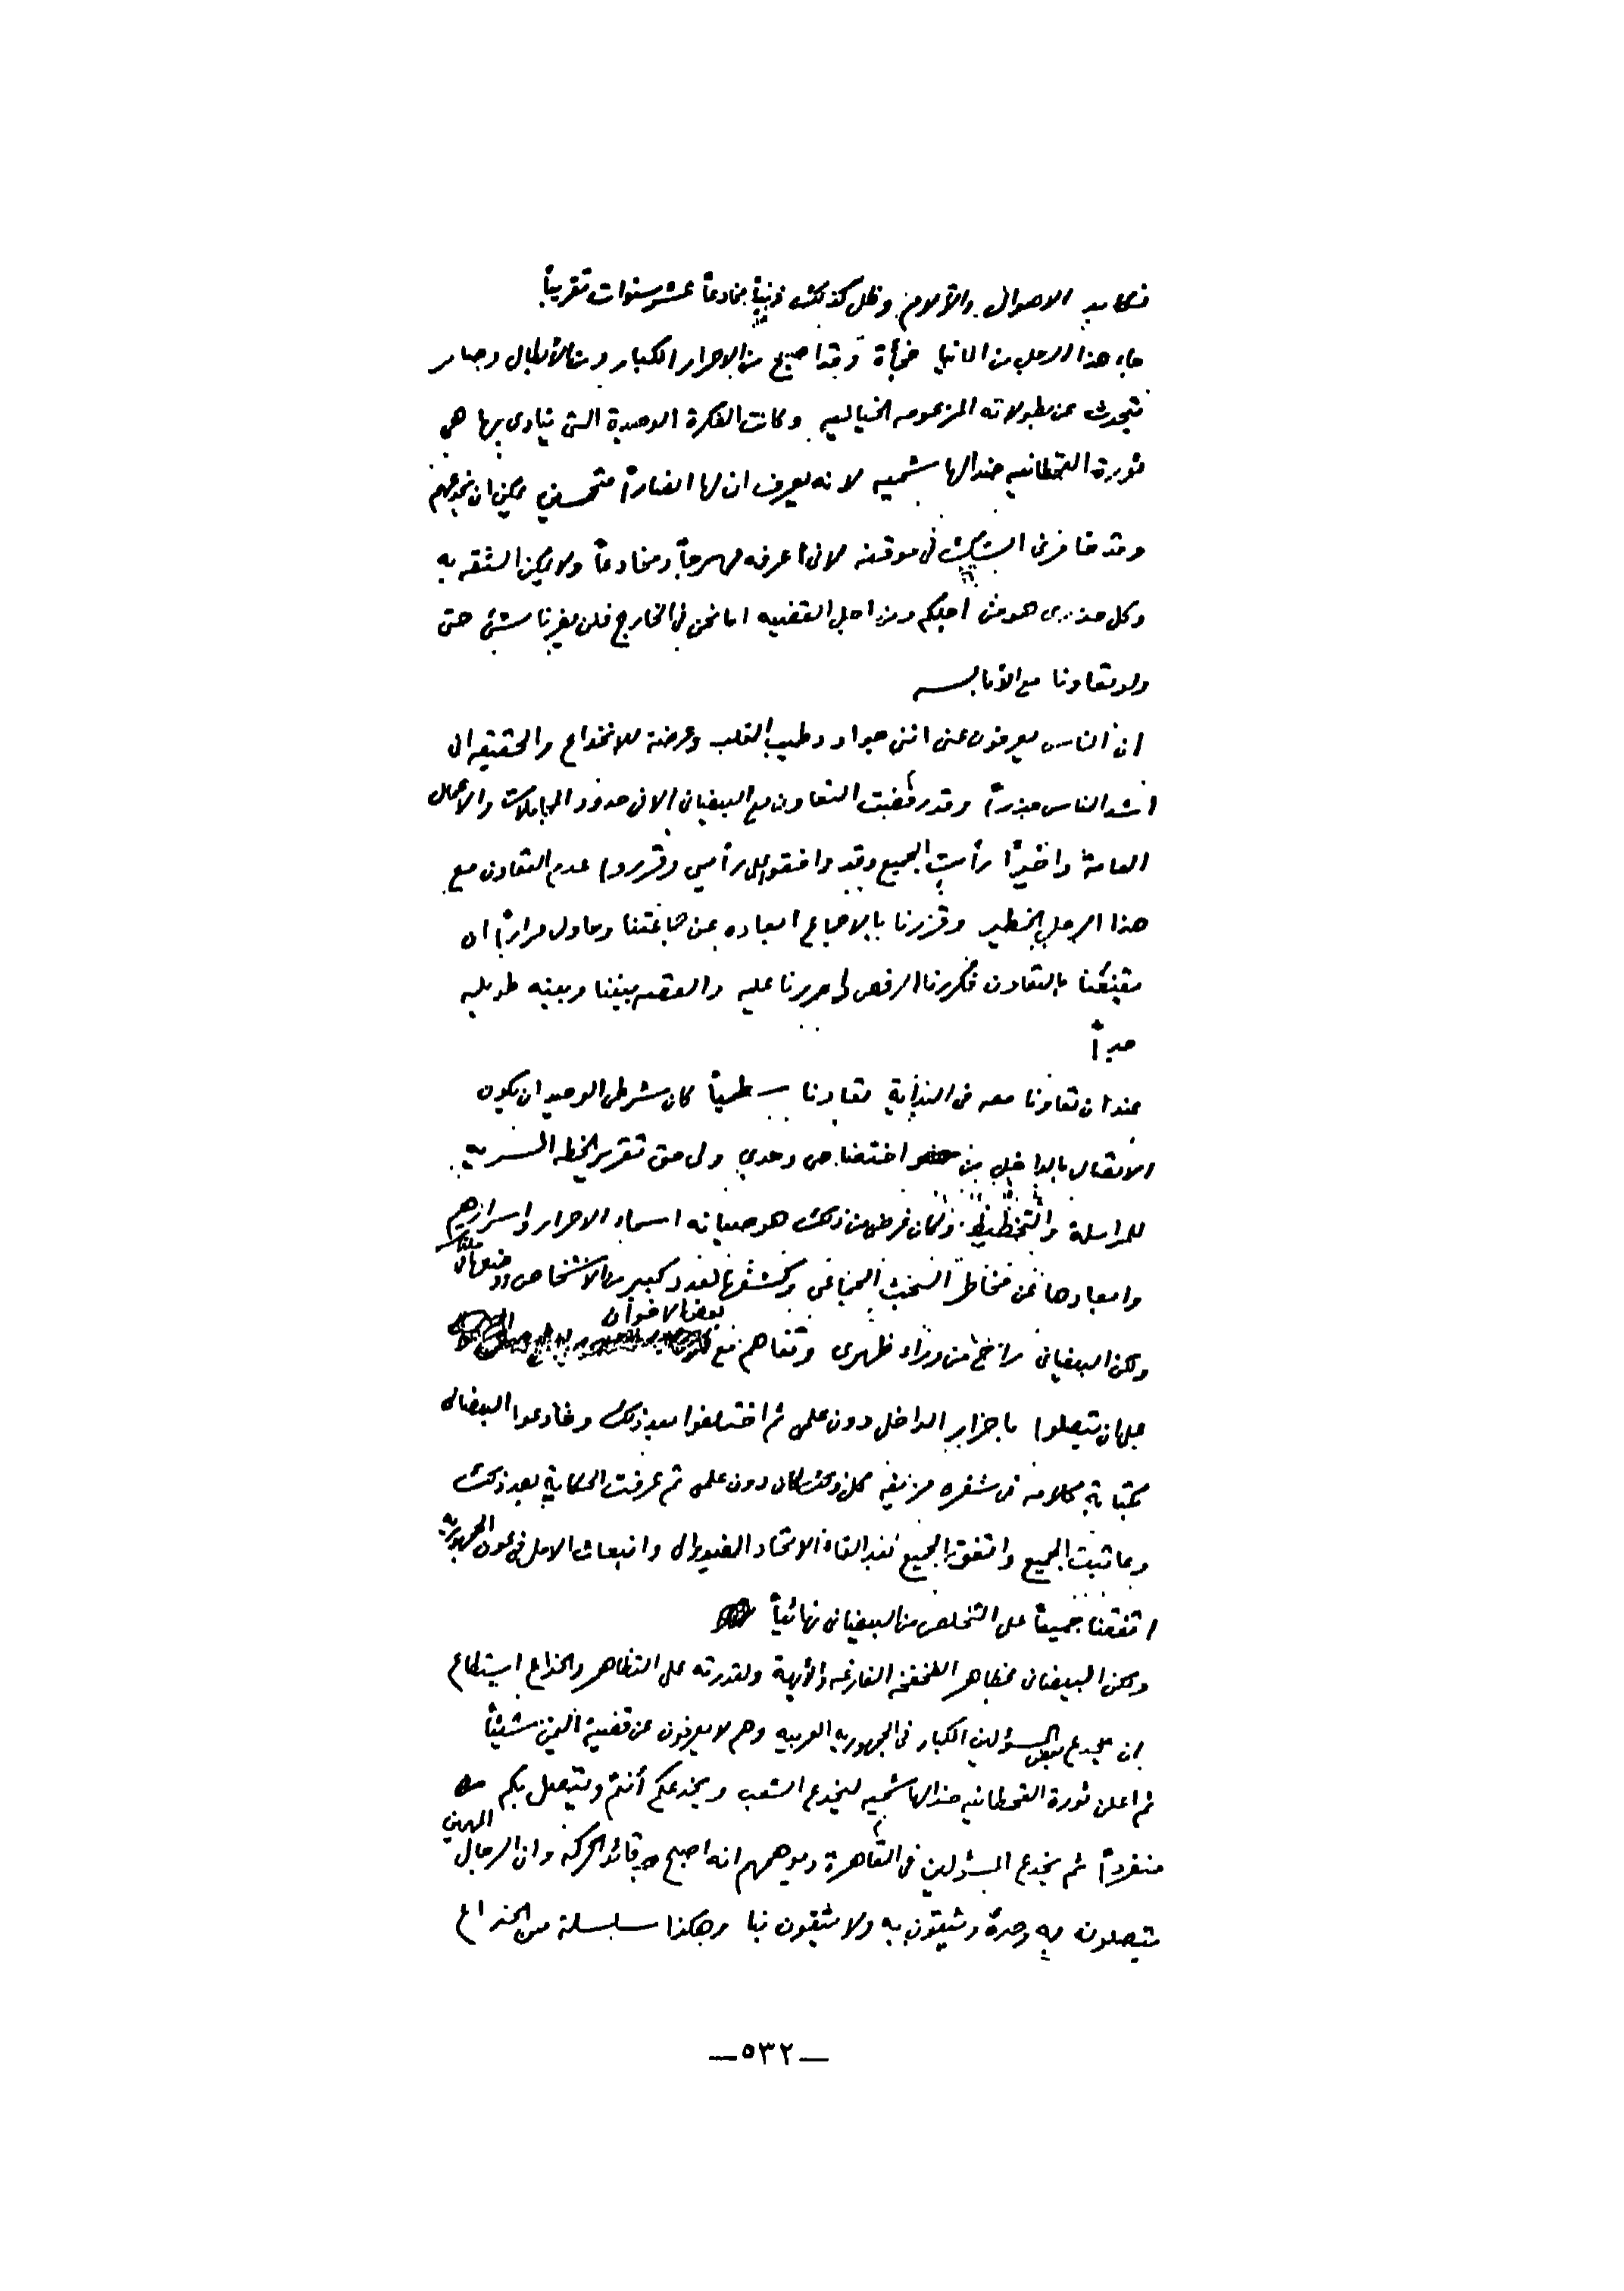 نكابد الاهوال والآلام وظل كذلك ذنباً مخادعاً عشر سنوات تقريباً
جاء هذا الرجل من المانيا فجأة وقد اصبح من الاحرار الكبار ومن الأبطال وصار
يتحدث عن بطولاته المزعومه الخياليه وكانت الفكرة الوحيدة التي ينادى بها هي
ثورة القحطانيه ضد الهاشميه لانه يعرف ان لها انصاراً متحمسين يمكن ان يخدعهم
وقد خامرني الشك في موقفه لاني اعرفه مهرجاً ومخادعاً ولا يمكن الثقه به
وكل حذرى هو من اجلكم ومن اجل القضيه اما نحن في الخارج فلن يضرنا شئ حتى
ولو تعاونا مع الأبالسه
ان الناس يعرفون عني انني جواد وطيب القلب وعرضة للانخداع والحقيقه اني
اشد الناس حذراً وقد رفضت التعاون مع البيضاني الا في حدود المجاملات والاعمال
العامة واخيراً رأيت الجميع وقد وافقوا على رأيي وقرروا عدم التعاون مع
هذا الرجل الخطير وقررنا بالاجماع ابعاده عن جماعتنا وحاول مراراً ان
يقنعنا بالتعاون فكررنا الرفض واصررنا عليه والقصه بيننا وبينه طويله
جداً
عندما تعاونا معه في البداية تعاونا سطحياً كان شرطي الوحيد ان يكون
الاتصال بالداخل من اختصاصي وحدي ولي حق تقرير الخطه السريه
للمراسلة والتخطيط وكان غرضي من ذلك هو صيانه اسماء الاحرار واسرارهم
وابعادها عن مخاطر البحث الجماعي وكشفها لعدد كبير من الاشخاص
بعض الاخوان
ولكن البيضاني راح من وراء ظهرى وتفاهم مع
على ان يتصلوا باحرار الداخل دون علمي ثم اختلفوا بعد ذلك وخادعوا البيضاني
بكتابة كلامه في شفره مزيفه كل ذلك كان دون علمي ثم عرفت الحكاية بعد ذلك
وعاتبت الجميع واتفق الجميع بعد الغاء الاتحاد الفيدرالى وانبعاث الامل في عون الجمهوريه
اتفقنا جميعاً على التخلص من البيضاني نهائياً
ولكن البيضاني بمظاهر الفخفخه الفارغه والأبهة ولقدرته على التظاهر والخداع استطاع
ان يخدع بعض المسؤولين الكبار في الجمهوريه العربيه وهم لا يعرفون عن قضية اليمن شيئاً
ثم اعلن ثورة القحطانيه ضد الهاشميه ليخدع الشعب ويخدعكم أنتم ويتصل بكم
منفرداً ثم يخدع المسؤلين في القاهرة ويوهمهم انه اصبح قائد الحركه وان الرجال
يتصلون به وحده ويثقون به ولا يثقون بنا وهكذا سلسلة من الخداع
—٥٣٢—